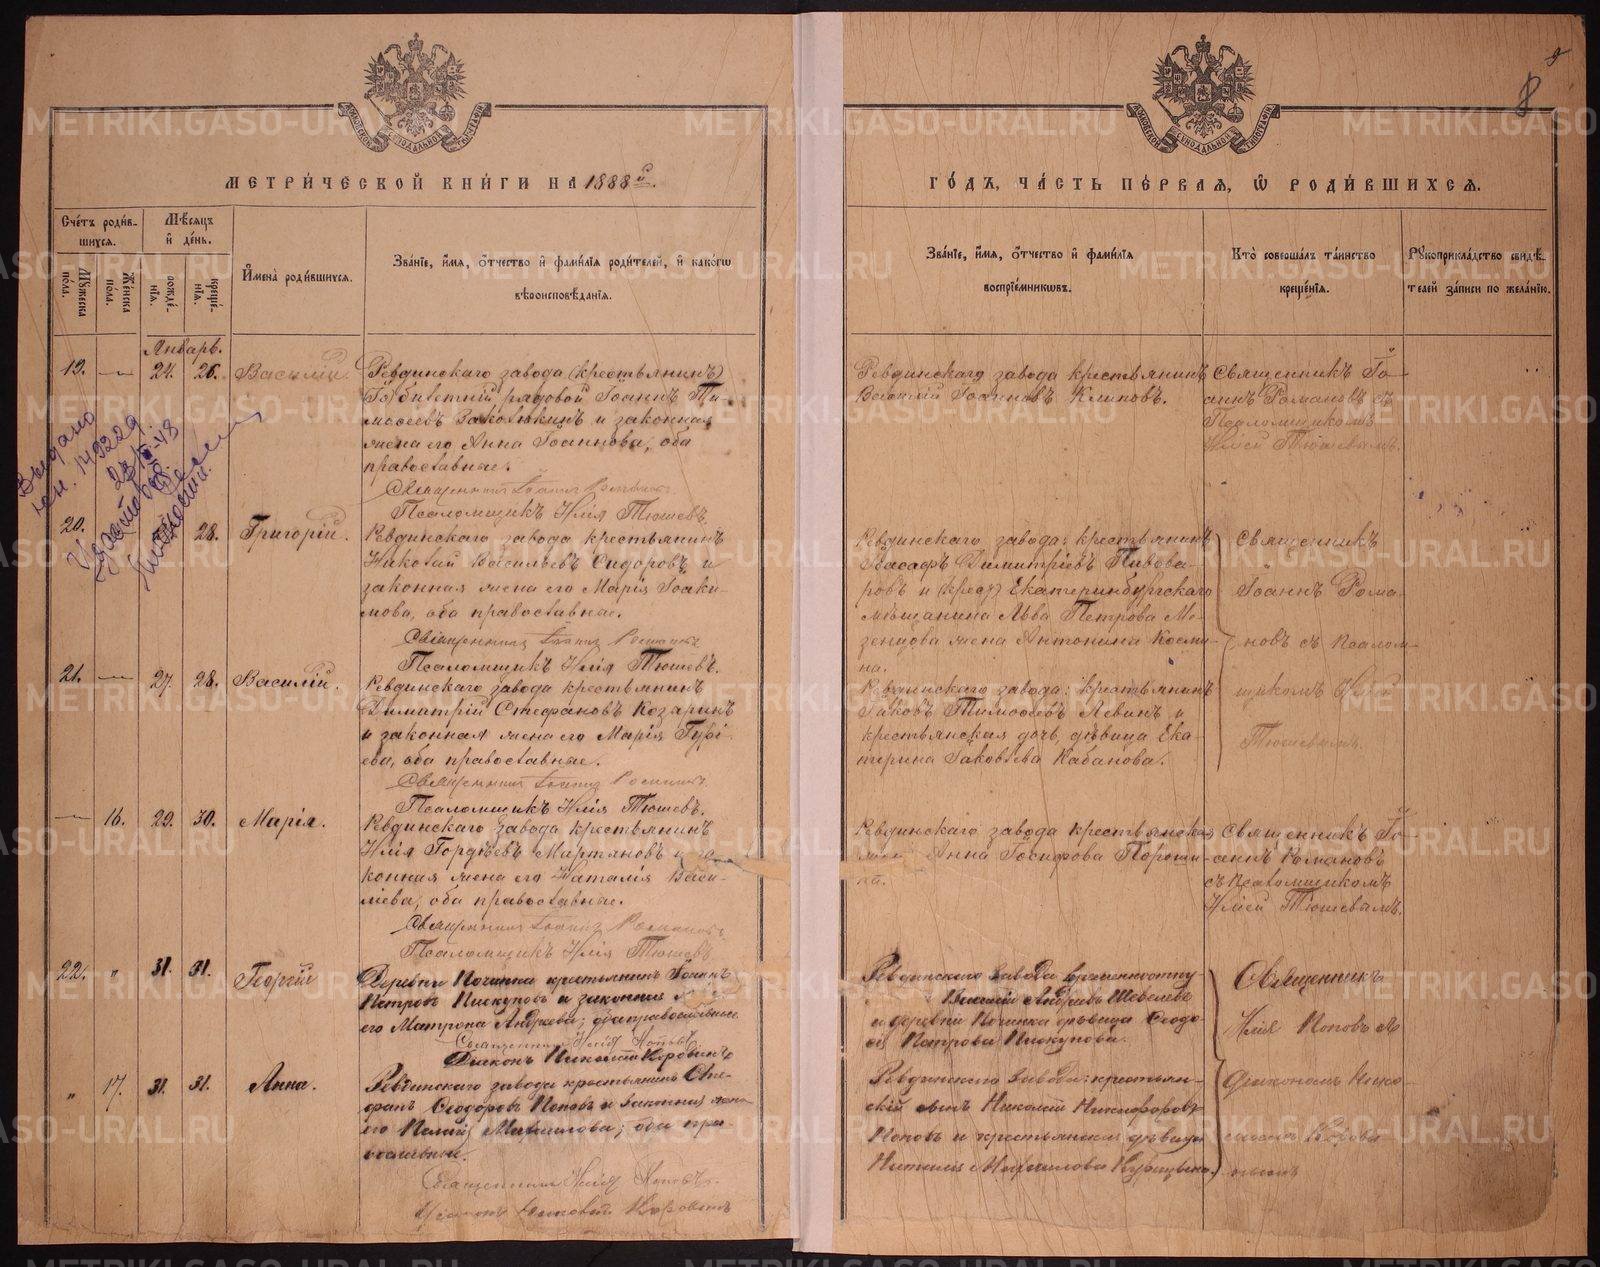 МЕТРИ́ЧЕСКОЙ КНИ́ГИ НА 1888 й.
ГО́ДЪ, ЧА́СТЬ ПЕ́РВАЯ, Ѡ РОДИ́ВШИХСѦ.
8
Сче́тъ роди́в-
шихся.
Мѣ́сяцъ
и҆ де́нь.
Мꙋ́жеска
по́ла.
Же́нска
по́ла.
рожде́-
нїя.
креще́-
нїя.
И҆мена̀ роди́вшихся.
Зва́нїе, и҆́мя, ѻ҆́тчество и҆ фами́лїя роди́телей, и҆ како́гѡ
вѣроисповѣ́данїя.
Зва́нїе, и҆́мя, ѻ҆́тчество и҆ фами́лїя
воспрїе́мникѡвъ.
Кто̀ соверша́лъ та́инство
креще́нїя.
Рꙋкоприкла́дство свидѣ́-
телей за́писи по жела́нїю.
Январь.
19. 24. 26. Василій.
Ревдинскаго завода (крестьянинъ)
рядовой Іоаннъ Ти-
моѳеевъ и законная
жена его Анна Іоаннова, оба
православные.
Священникъ Іоаннъ Романовъ
Псаломщикъ Илія Тюшевъ.
Ревдинскаго завода крестьянинъ
Василій Іоанновъ Климовъ.
Священникъ Іо-
аннъ Романовъ съ
Псаломщикомъ
Иліей Тюшевымъ.
Выдано
20. 28. Григорій.
Ревдинскаго завода крестьянинъ
Николай Васильевъ Сидоровъ и
законная жена его Марія Іоаки-
мова, оба православные.
Священникъ Іоаннъ Романовъ
Псаломщикъ Илія Тюшевъ.
Ревдинскаго завода: крестьянинъ
Іоасафъ Димитріевъ Пивова-
ровъ и Екатеринбургскаго
мѣщанина Льва Петрова Ме-
зенцова жена Антонина Косми-
на.
Священникъ
Іоаннъ Рома-
новъ съ псалом-
щикомъ Иліей
Тюшевымъ.
21. 27. 28. Василій.
Ревдинскаго завода крестьянинъ
Димитрій Стефановъ Козаринъ
и законная жена его Марія Гурі-
ева, оба православные.
Священникъ Іоаннъ Романовъ.
Псаломщикъ Илія Тюшевъ.
Ревдинскаго завода: крестьянинъ
Іаковъ Тимоѳеевъ Левинъ и
крестьянская дочь, дѣвица Ека-
терина Іаковлева Кабанова.
16. 29. 30. Марія.
Ревдинскаго завода крестьянинъ
Илія Гордѣевъ Мартяновъ и за-
конная жена его Наталія Васи-
ліева, оба православные.
Священникъ Іоаннъ Романовъ.
Псаломщикъ Илія Тюшевъ
Ревдинскаго завода крестьянская
Анна Іосифова
Священникъ Іо-
аннъ Романовъ
съ Псаломщикомъ
Иліей Тюшевымъ.
22. " 31. 31. Георгій
Деревни Починка крестьянинъ Іоаннъ
Петровъ Пискуновъ и законная
его Матрона Андреева; оба православные.
Священникъ Илія Поповъ
Діаконъ Николай Коровинъ
Ревдинскаго завода
Василій Андреевъ Шевелевъ
и деревни Починка дѣвица Ѳеодо-
сія Петрова Пискунова.
Священникъ
Илія Поповъ съ
діакономъ Нико-
лаемъ Корови-
нымъ
" 17. 31. 31. Анна.
Ревдинскаго завода крестьянинъ Сте-
фанъ Ѳеодоровъ Поповъ и законная жена
его Пелагія Михаилова; оба пра-
вославные.
Священникъ Илія Поповъ.
Діаконъ Николай Коровинъ
Ревдинскаго завода: крестьян-
скій сынъ Николай Никифоровъ
Поповъ и крестьянская дѣвица
Наталія Михаилова
METRIKI.GASO-URAL.RU